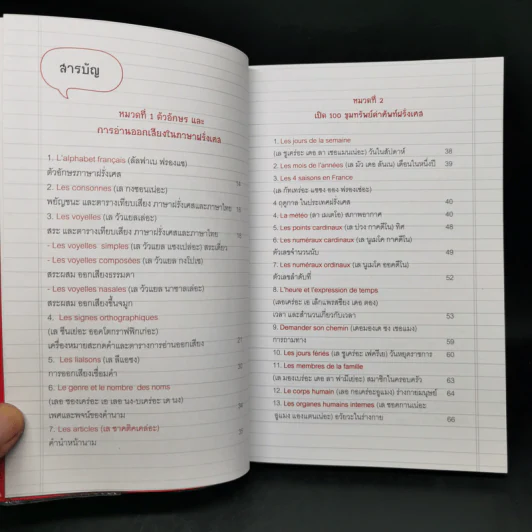 สารบัญ
หมวดที่ 1 ตัวอักษร และ
การอ่านออกเสียงในภาษาฝรั่งเศส
1. L'alphabet français (ลัลฟาเบ ฟรองแซ)
ตัวอักษรภาษาฝรั่งเศส
2. Les consonnes (เล กงซอนเน่อะ)
พยัญชนะ และตารางเทียบเสียง ภาษาฝรั่งเศสและภาษาไทย
3. Les voyelles (เล วัวแยลเล่อะ)
สระ และตารางเทียบเสียง ภาษาฝรั่งเศสและภาษาไทย
- Les voyelles simples (เล วัวแยล แซงเปล่อะ) สระเดี่ยว
- Les voyelles composées (เล วัวแยล กงโปเซ)
สระผสม ออกเสียงธรรมดา
- Les voyelles nasales (เล วัวแยล นาซาลเล่อะ)
สระผสม ออกเสียงขึ้นจมูก
4. Les signes orthographiques
(เล ซีนเย่อะ ออคโตกราฟฟิกเก่อะ)
เครื่องหมายสะกดคำและตารางการอ่านออกเสียง 21
5. Les liaisons (เล ลีแอซง)
การออกเสียงเชื่อมคำ
6. Le genre et le nombre des noms
(เลอ ชองเคร่อะ เอ เลอ นง-บเคร่อะ เด นง)
เพศและพจน์ของคำนาม
7. Les articles (เล ซาคติคเคล่อะ)
คำนำหน้านาม
หมวดที่ 2
เปิด 100 ขุมทรัพย์คำศัพท์ฝรั่งเศส
1. Les jours de la semaine
(เล ชูเคร่อะ เดอ ลา เซอแมนเน่อะ) วันในสัปดาห์ 38
2. Les mois de l'années (เล มัว เดอ ลันเน) เดือนในหนึ่งปี 39
3. Les 4 saisons en France
(เล กัทเคร่อะ แซซง ออง ฟรองซ์เซ่อะ)
4 ฤดูกาล ในประเทศฝรั่งเศส 40
4. La météo (ลา เมเตโอ) สภาพอากาศ 40
5. Les points cardinaux (เล ปวง กาคดิโน) ทิศ 48
6. Les numéraux cardinaux (เล นูเมโค กาคดิโน)
ตัวเลขจำนวนนับ 49
7. Les numéraux ordinaux (เล นูเมโค ออคดิโน)
ตัวเลขลำดับที่ 52
8. L'heure et l'expression de temps
(เลอเคร่อะ เอ เล็กแพรสซียง เดอ ตอง)
เวลา และสำนวนเกี่ยวกับเวลา 53
9. Demander son chemin (เดอมองเด ซง เชอแมง)
การถามทาง 59
10. Les jours fériés (เล ชูเคร่อะ เฟครีเย) วันหยุดราชการ 60
11. Les membres de la famille
(เล มองเบร่อะ เดอ ลา ฟามีเย่อะ) สมาชิกในครอบครัว 63
12. Le corps humain (เลอ กอเคร่อะอูแมง) ร่างกายมนุษย์ 64
13. Les organes humains internes (เล ซอคกานเน่อะ
อูแมง แองแตนเน่อะ) อวัยวะในร่างกาย 66